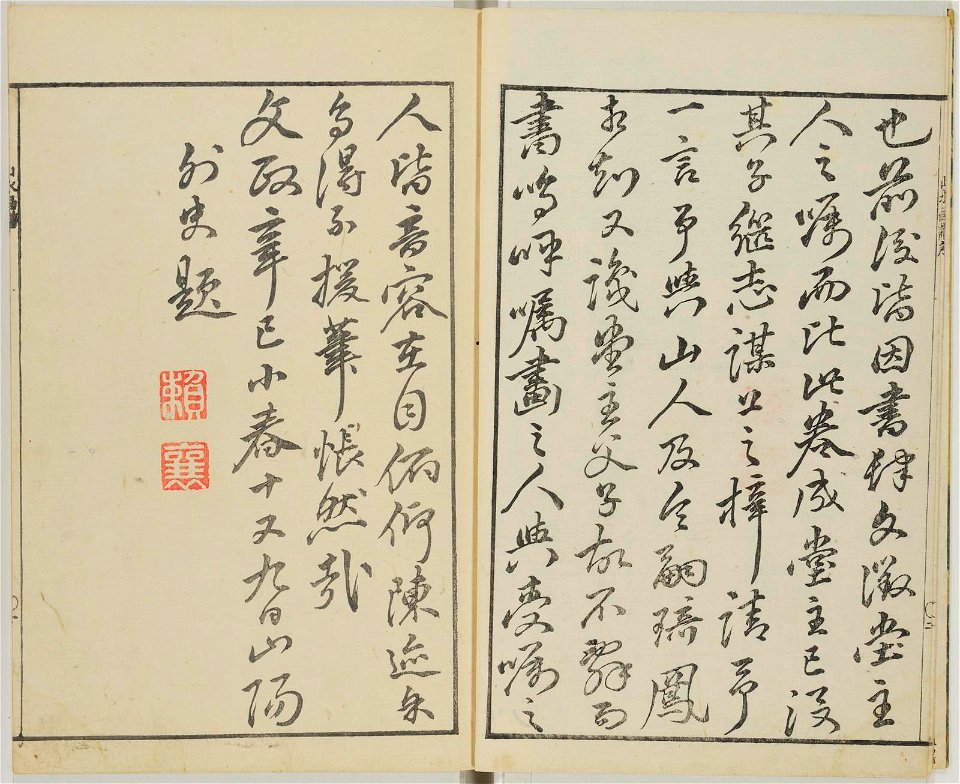 也前後皆因書肆文徴堂主
人之嘱而比此巻成堂主已没
其子継志謀上之梓請予
一言予與山人及令嗣琦鳳
相知又識堂主父子故不辞而
書嗚呼嘱畫之人與受嘱之
人皆音容在目俯仰陳迹矣
烏得不援筆悵然哉
文政辛巳小春十又九日山陽
外史題
賴
襄